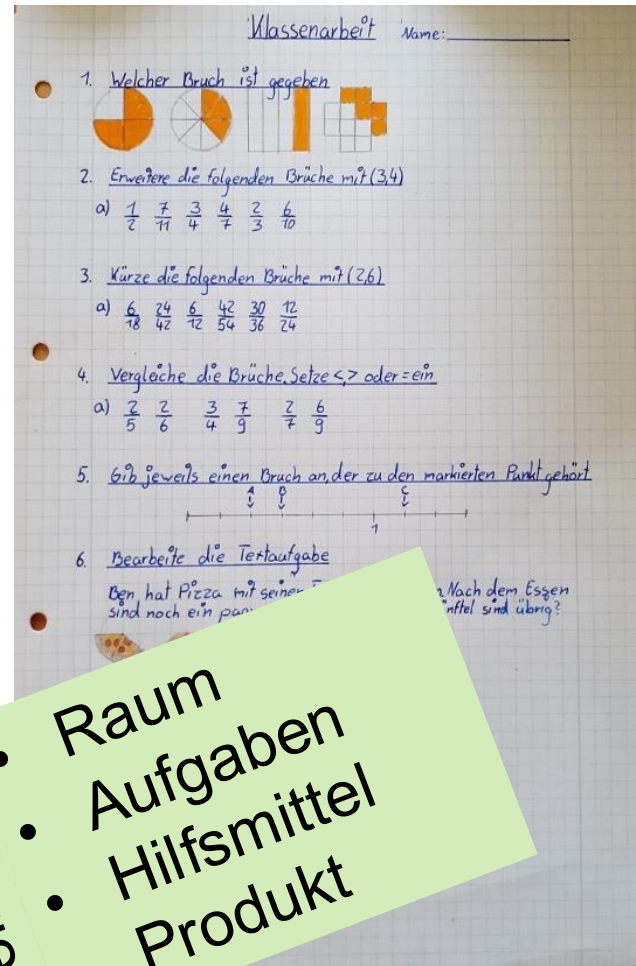 Klassenarbeit Name:
1. Welcher Bruch ist gegeben
2. Erweitere die folgenden Brüche mit (3,4)
a) 1/2 7/11 3/4 4/7 2/3 6/10
3. Kürze die folgenden Brüche mit (2,6)
a) 6/18 24/42 6/12 42/54 30/36 12/24
4. Vergleiche die Brüche. Setze <,> oder = ein
a) 2/5 2/6 3/4 7/9 2/7 6/9
5. Gib jeweils einen Bruch an, der zu den markierten Punkt gehört
A B C
1
6. Bearbeite die Textaufgabe
Ben hat Pizza mit seiner Nach dem Essen
sind noch ein sind übrig?
• Raum
• Aufgaben
• Hilfsmittel
Produkt